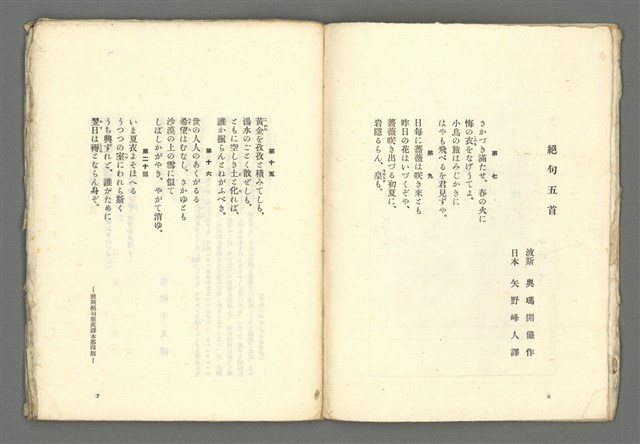 絕句五首
波斯 奧瑪開儼作
日本 矢野峰人譯
第七
さかづき滿たせ、春の火に
悔の衣をなげうてよ。
小鳥の旅はみじかきに
はやも飛べるを君見ずや。
第九
日每に薔薇は咲き來とも
昨日の花はいづくぞや、
薔薇咲き出づる初夏に、
岩隱るらん、皇も。
第十五
黃金を孜孜と積みてしも、
湯水のごとく散ぜしも、
ともに空しき土と化れば、
誰か掘らんとねがふべき。
第十六
世の人人のあくがるる
希望はむなし、さかゆとも
沙漠の上の雪に似て
しばしかがやき、やがて消ゆ。
第二十三
いま夏衣よそほへる
うつつの室にわれら斯く
うち興ずれど、誰がために
翌日は褥とならん身ぞ。
7